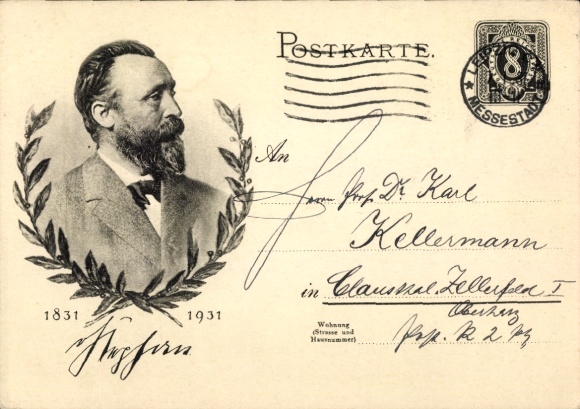 POSTKARTE.
8
LEIPZIG
MESSESTADT
An
Herrn Prof. Dr. Karl
Kellermann
in Clausthal-Zellerfeld I
Oberharz
Wohnung
(Strasse und
Hausnummer)
1831 1931
Stephan